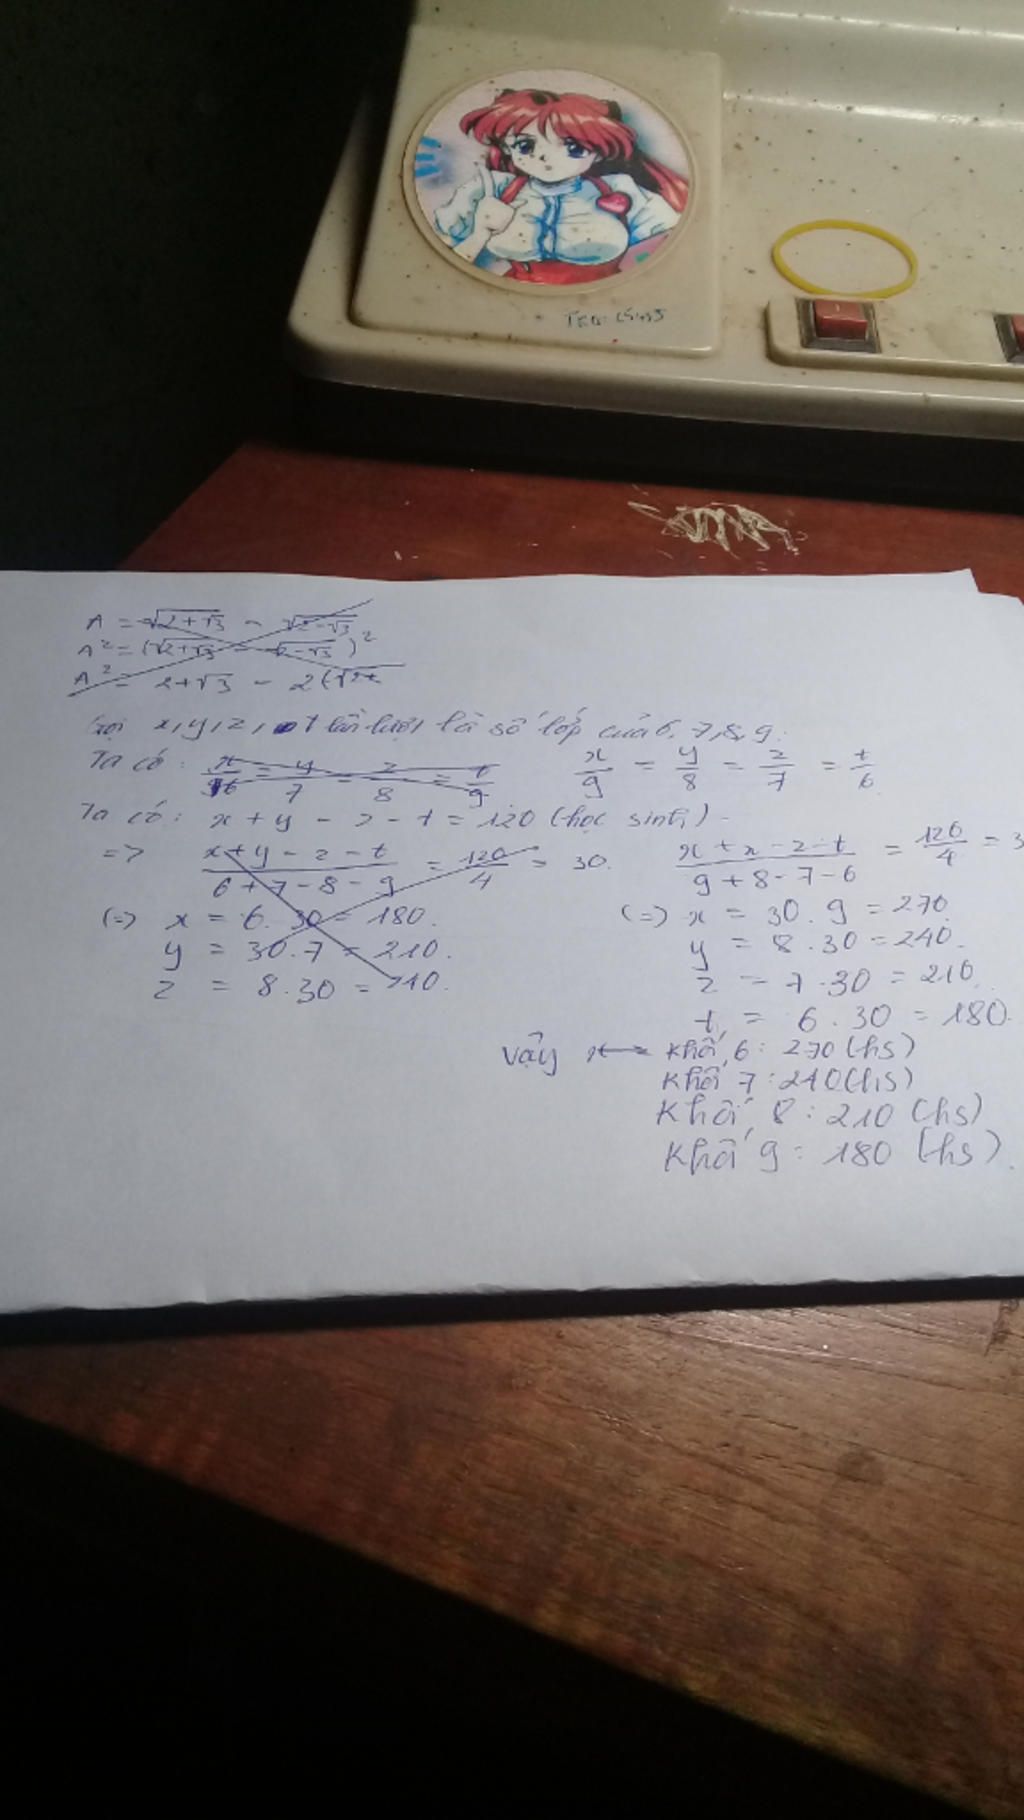 A = √2+√3 - √2-√3
A² = (√2+√3 - √2-√3)²
A² = 2+√3 - 2(√2+
Gọi x, y, z, t lần lượt là số lớp của 6, 7, 8, 9.
Ta có: x/6 = y/7 = z/8 = t/9 x/9 = y/8 = z/7 = t/6
Ta có: x + y - z - t = 120 (học sinh)
=> x+y-z-t/6+7-8-9 = 120/4 = 30. x+x-z-t/9+8-7-6 = 120/4 = 3
(=) x = 6.30 = 180. (=) x = 30.9 = 270
y = 30.7 = 210. y = 8.30 = 240.
z = 8.30 = 210. z = 7.30 = 210.
t = 6.30 = 180.
Vậy Khối 6: 270 (hs)
Khối 7: 240 (hs)
Khối 8: 210 (hs)
Khối 9: 180 (hs).